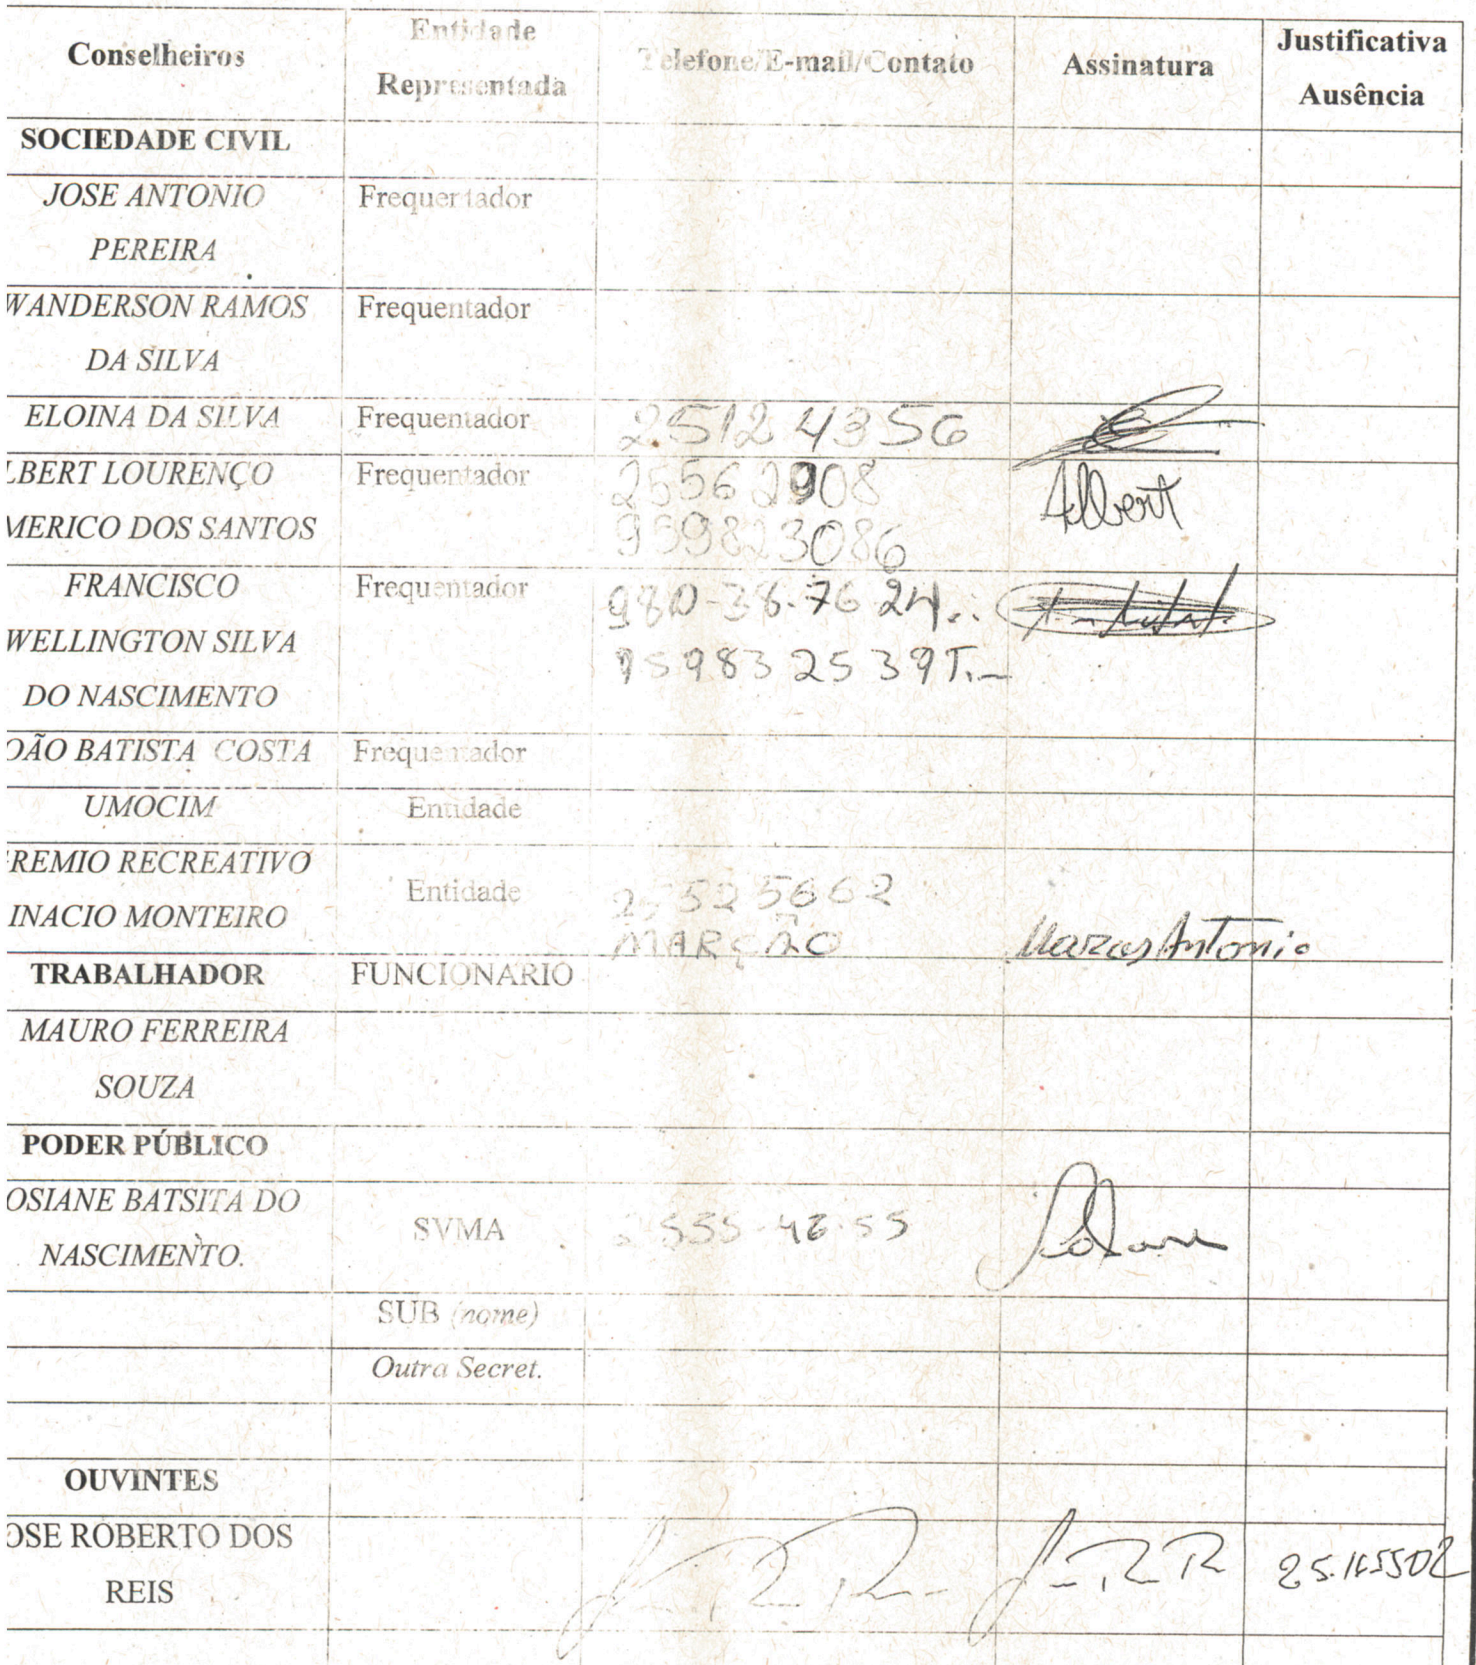 Conselheiros
Entidade
Representada
Telefone/E-mail/Contato
Assinatura
Justificativa
Ausência
SOCIEDADE CIVIL
JOSE ANTONIO
PEREIRA
Frequentador
WANDERSON RAMOS
DA SILVA
Frequentador
ELOINA DA SILVA
Frequentador
2512 4356
LBERT LOURENÇO
MERICO DOS SANTOS
Frequentador
25562908
959823086
Albert
FRANCISCO
WELLINGTON SILVA
DO NASCIMENTO
Frequentador
980-38-76 24
OÃO BATISTA COSTA
Frequentador
UMOCIM
Entidade
REMIO RECREATIVO
INACIO MONTEIRO
Entidade
25525662
MARÇÃO
Marcos Antonio
TRABALHADOR
FUNCIONARIO
MAURO FERREIRA
SOUZA
PODER PÚBLICO
OSIANE BATSITA DO
NASCIMENTO.
SVMA
SUB (nome)
Outra Secret.
OUVINTES
OSE ROBERTO DOS
REIS